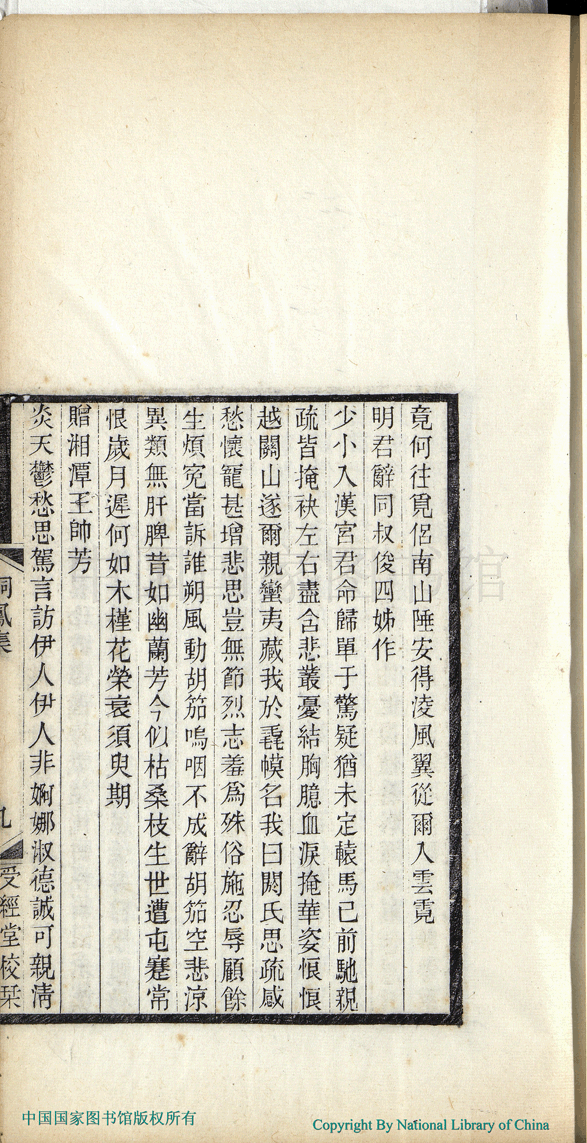 竟何往覓侶南山陲安得凌風翼從爾入雲霓
明君辭同叔俊四姊作
少小入漢宮君命歸單于驚疑猶未定轅馬已前馳親
疏皆掩袂左右盡含悲叢憂結胸臆血淚掩華姿悢悢
越關山遂爾親蠻夷藏我於毳幙名我曰閼氏思疏感
愁懷寵甚增悲思豈無節烈志羞為殊俗施忍辱顧餘
生煩寃當訴誰朔風動胡笳嗚咽不成辭胡笳空悲涼
異類無肝脾昔如幽蘭芳今似枯桑枝生世遭屯蹇常
恨歲月遲何如木槿花榮衰須臾期
贈湘潭王帥芳
炎天鬱愁思駕言訪伊人伊人非婀娜淑德誠可親淸
桐鳳集
九
受經堂校栞
中国国家图书馆版权所有
Copyright By National Library of China